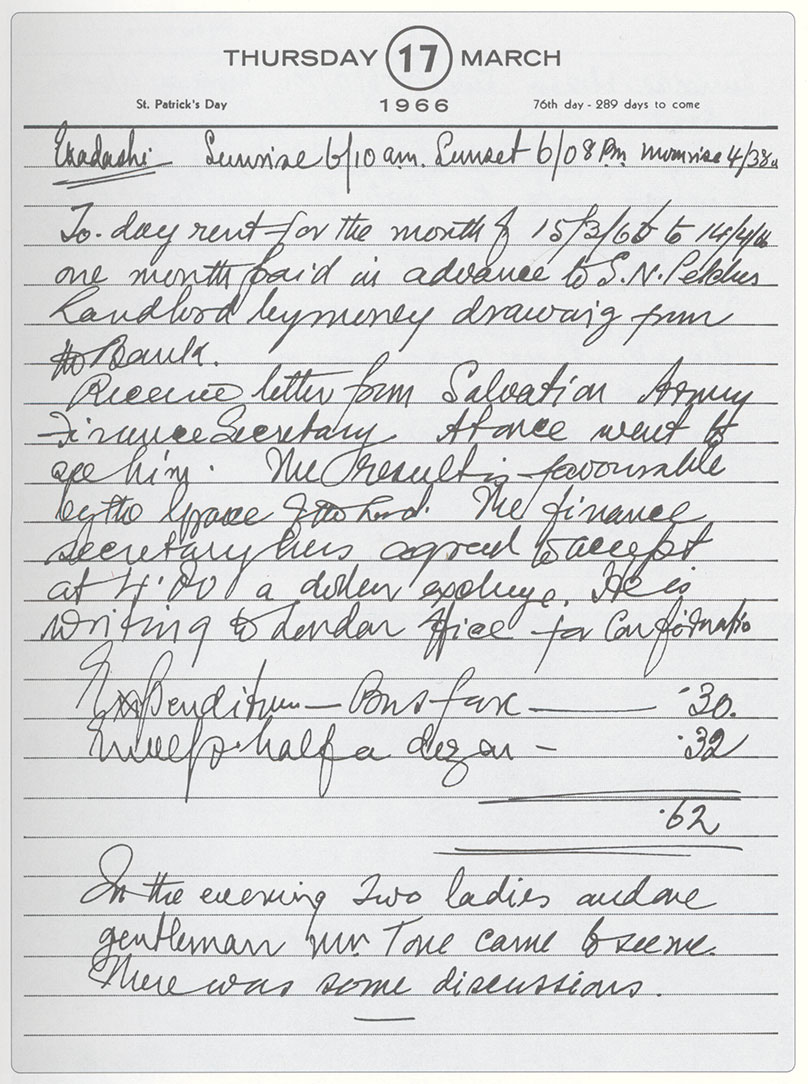 THURSDAY 17 MARCH
St. Patrick's Day 1966 76th day - 289 days to come
Ekadashi Sunrise 6/10 am. Sunset 6/08 Pm Moonrise 4/38a
To-day rent for the month of 15/3/66 to 14/4/66
one month paid in advance to S.N. Pelcher
Landlord by money drawaig from
the Bank.
Receive letter from Salvation Army
Finance Secretary Atonce went to
see him. The result is favourable
by the Grace of the Lord. The finance
secretary has agreed to accept
at 4'00 a dollar exchange. He is
writing to London office for Confirmatio
Expenditure — Bus fare — .30.
half a dozen — .32
.62
In the evening Two ladies and one
gentleman Mr. Tone came to see me.
There was some discussions.